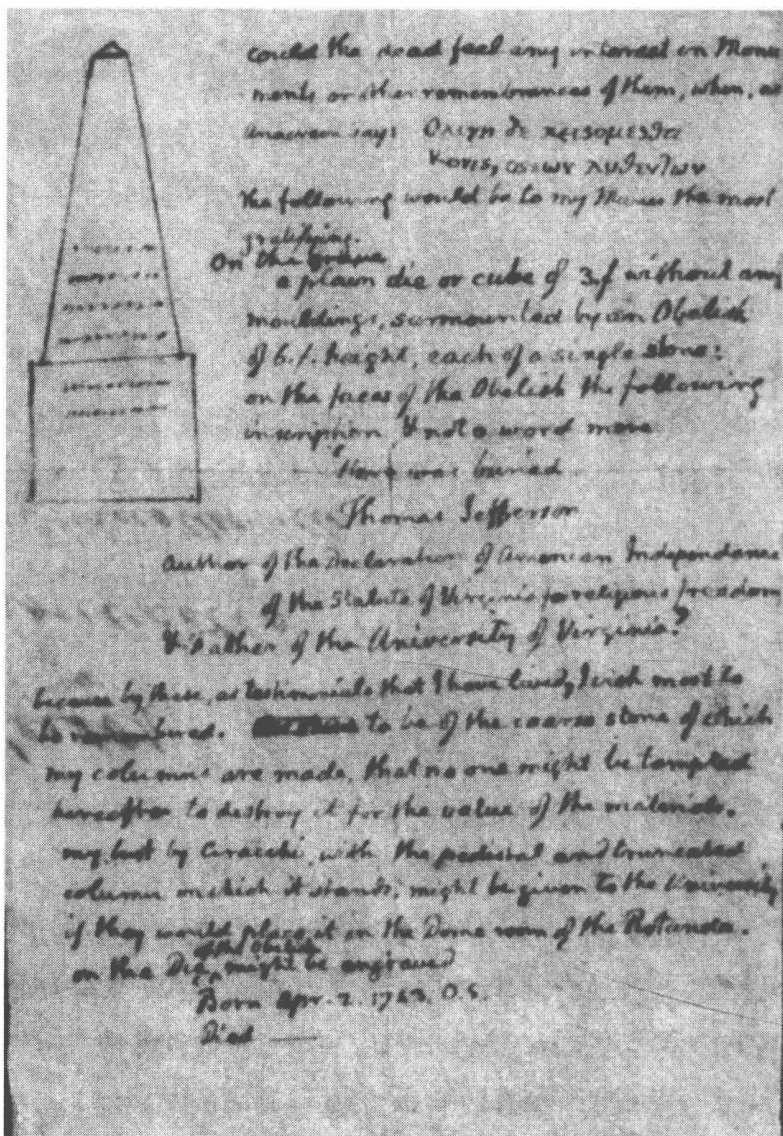 could the dead feel any interest in Monu
ments or other remembrances of them, when, as
Anacreon says Ολιγη δε κεισομεσθα
Κονις, οςεων λυθεντων
the following would be to my Manes the most
gratifying.
On the grave
a plain die or cube of 3.f without any
mouldings, surmounted by an Obelisk
of 6.f. height, each of a single stone:
on the faces of the Obelisk the following
inscription, & not a word more
"Here was buried
Thomas Jefferson
Author of the Declaration of American Independance
of the Statute of Virginia for religious freedom
& Father of the University of Virginia."
because by these, as testimonials that I have lived, I wish most to
be remembered. to be of the coarse stone of which
my columns are made, that no one might be tempted
hereafter to destroy it for the value of the materials.
my bust by Ciracchi, with the pedestal and truncated
column on which it stands, might be given to the University
if they would place it in the Dome room of the Rotunda.
on the Die of the Obelisk might be engraved
Born Apr. 2. 1743. O.S.
Died ——